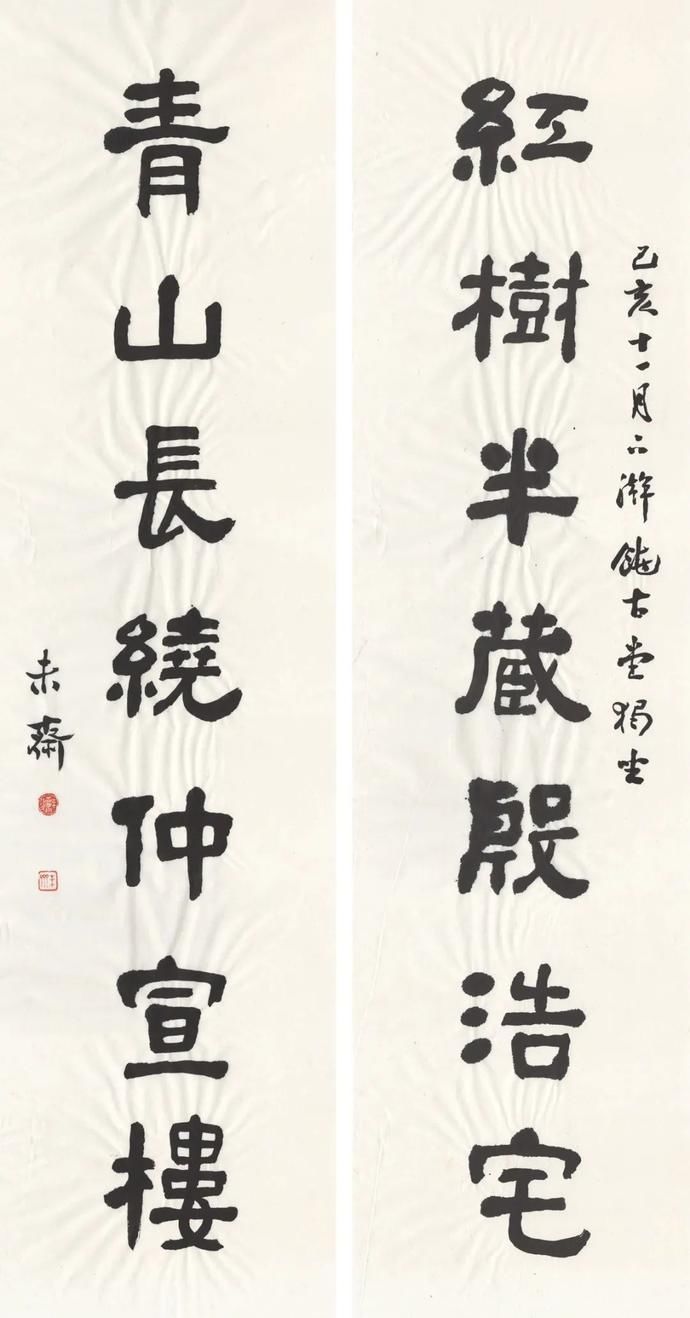 己亥十一月下澣古堂獨坐
紅樹半藏殷浩宅
青山長繞仲宣樓
未齋